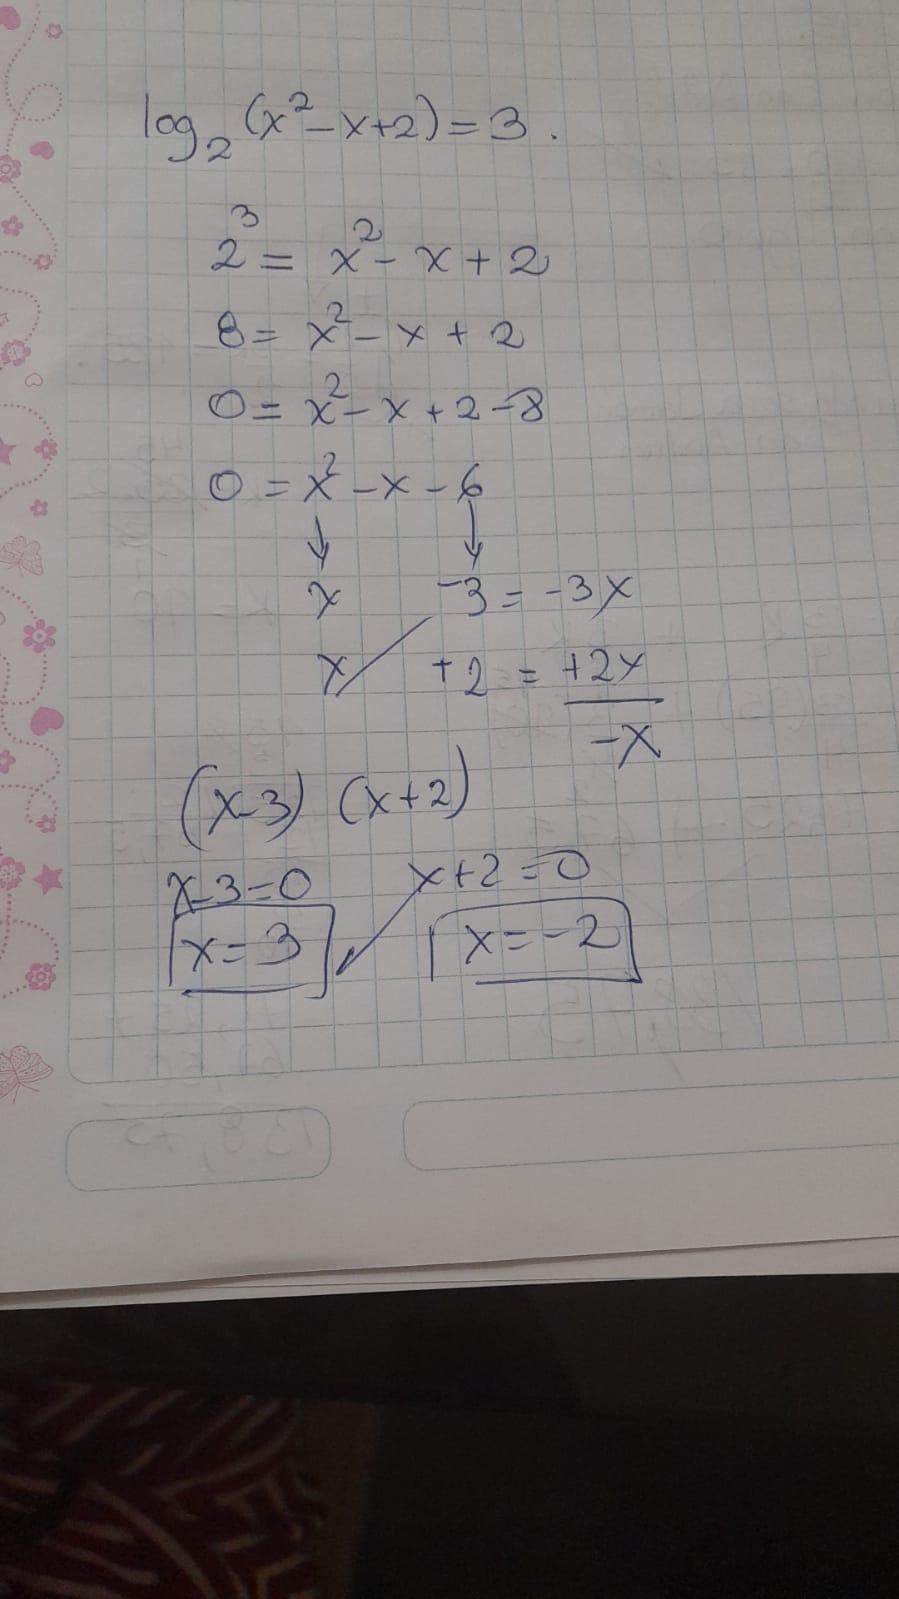 log₂(x²-x+2)=3.
2³ = x²-x+2
8= x²-x+2
0= x²-x+2-8
0=x²-x-6
x -3=-3x
x +2=+2x
-x
(x-3) (x+2)
x-3=0 x+2=0
x=3 x=-2